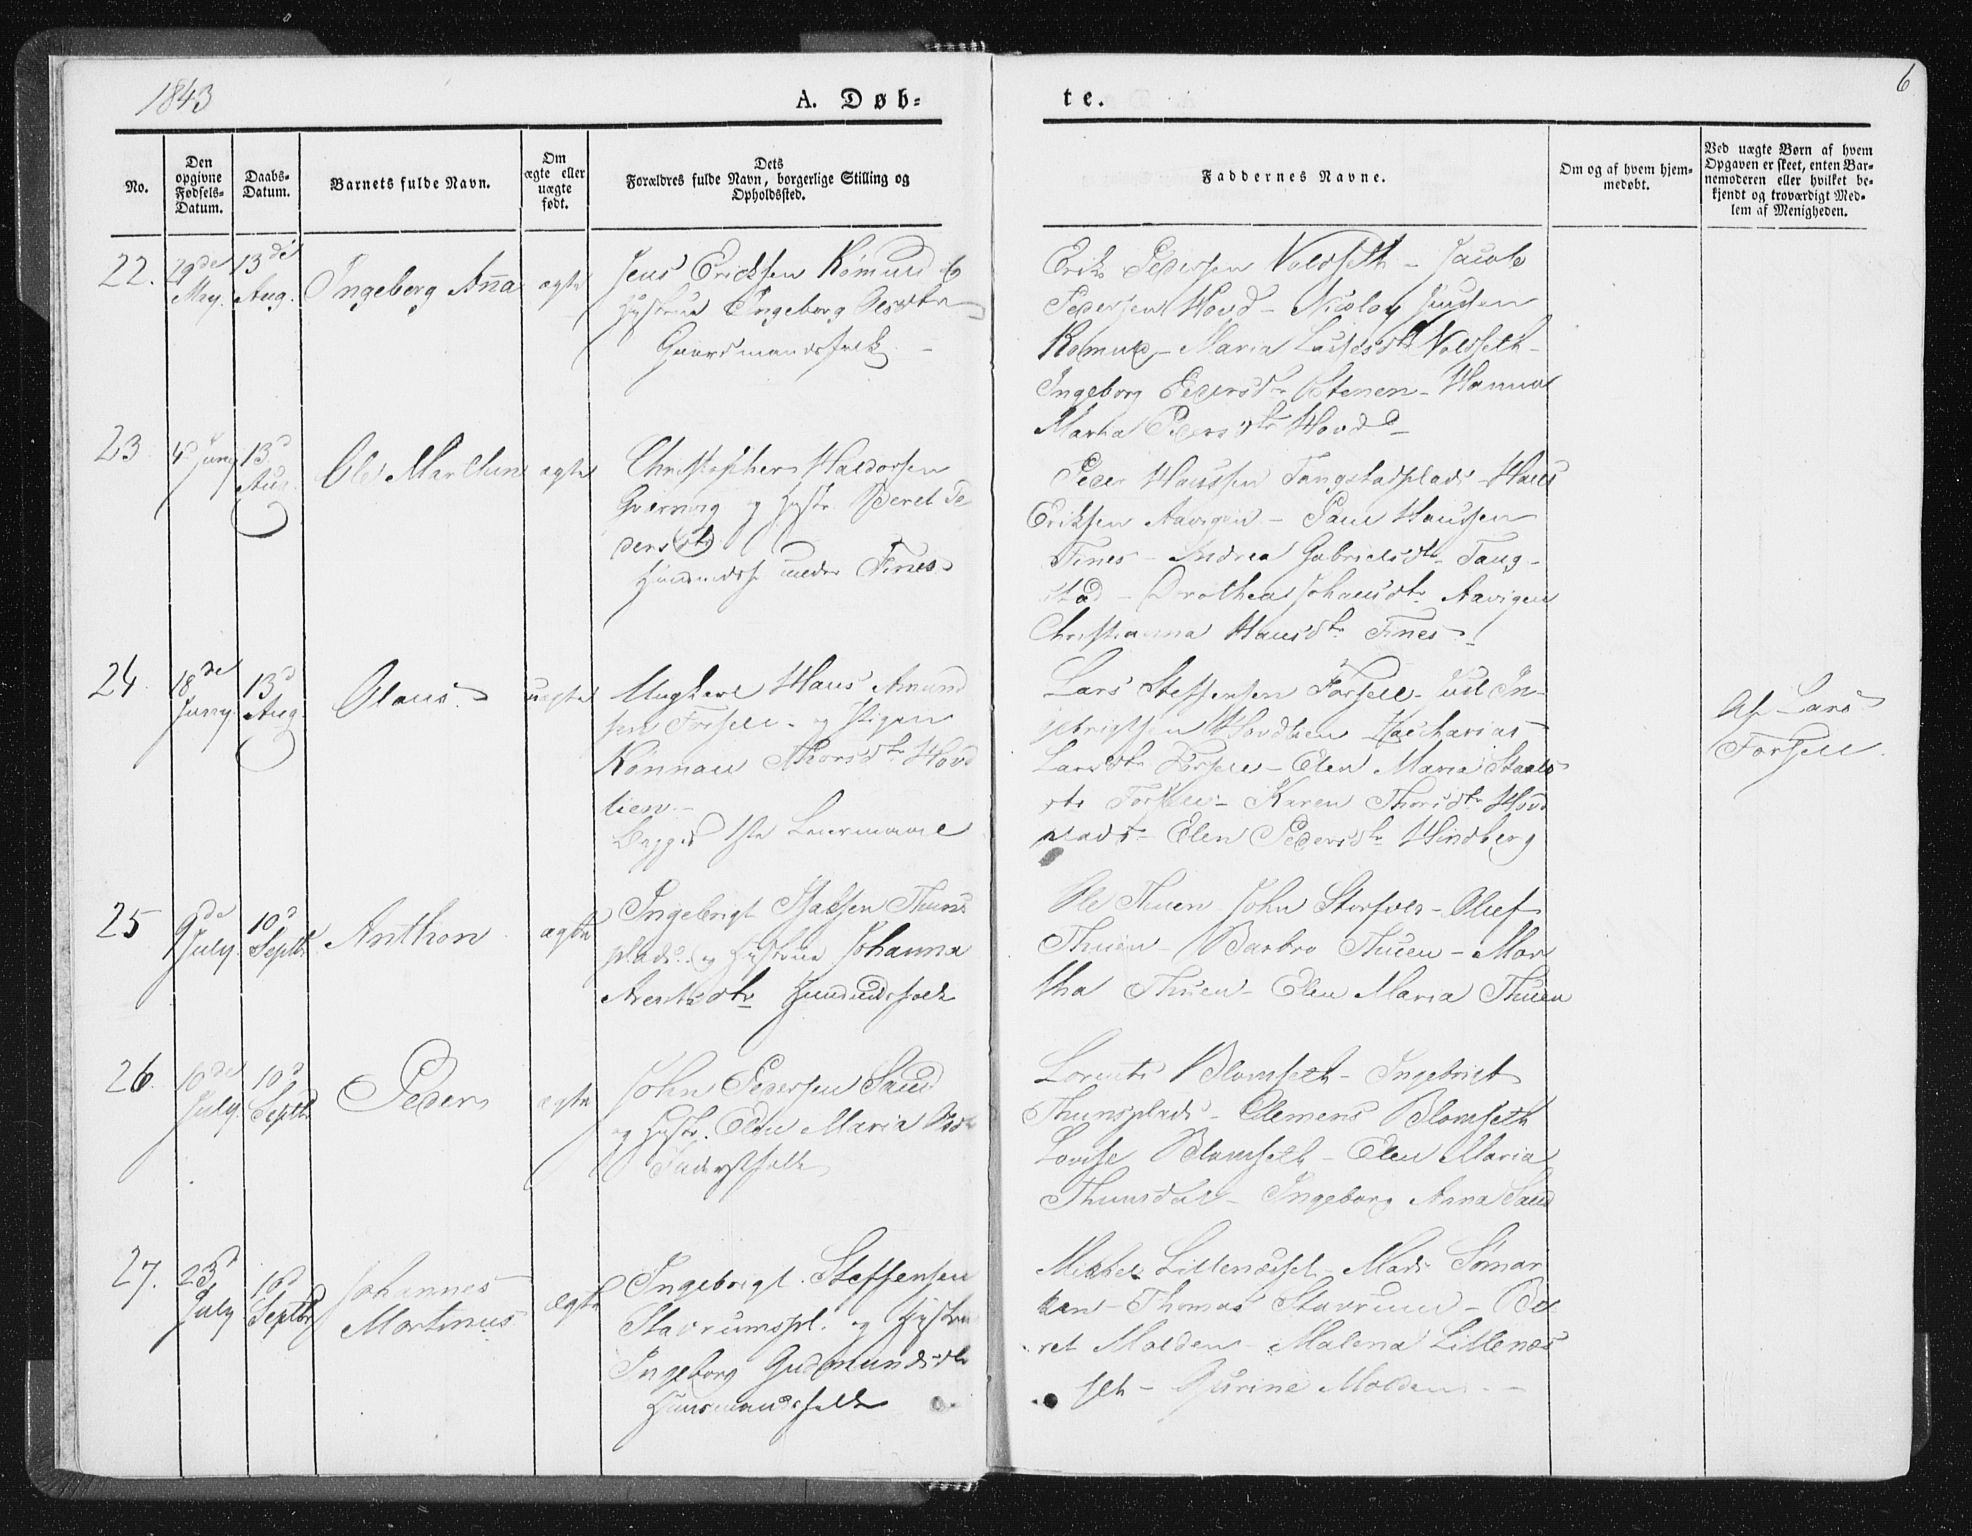 1843
A. Døb-
te.
6
No.
Den opgivne Fødsels-Datum.
Daabs-Datum.
Barnets fulde Navn.
Om ægte eller uægte født.
Dets
Forældres fulde Navn, borgerlige Stilling og
Opholdssted.
Faddernes Navne.
Om og af hvem hjem-
medøbt.
Ved uægte Børn af hvem
Opgaven er skeet, enten Bar-
nemoderen eller hvilket be-
kjendt og troværdigt Med-
lem af Menigheden.
22. 29de May. 13de Aug. Ingeberg Anna ægte
Jens Ericksen Römund og
Hystrue Ingeborg Olsdtr
Gaardmandsfolk
Erik Pedersen Voldseth - Jacob
Pedersen Hovd - Nicolay Jensen
Römund - Maria Voldseth -
Ingeborg Pedersdtr Stenen - Hanna
Martha Pedersdtr Hovd -
23 4d Juny 13d Aug. Ole Martinus ægte
Christopher Haldorsen
og Hustr Beret Pe
dersdtr
under Fines
Peder Hanssen Tangstadplads - Hans
Eriksen Aavigen - Paul Hanssen
Fines - Andrea Gabrielsdtr Tang-
stad - Dorothea Johansdtr Aavigen
Christianna Hansdtr Fines -
24. 18de Juny. 13d Aug. Olaus. uægte
Ungkarl Hans Amund
sen Forsell - og Pigen
Könnau Thorsdtr Hovd
lien -
Begges 1ste Leiermaal
Lars Steffensen Forsell - In-
gebrigtsen Hovdlien Zacharias
Larsdtr Forsell - Elen Maria
Forsell - Karen Thorsdtr Hovd
plads - Elen Pedersdtr Hindberg
Af Lars
Forsell.
25 9de July. 10d Septbr. Anthon ægte
Ingebrigt Thuns
plads. og Hystrue Johanna
Arentsdtr Husmdsfolk
Ole Thuen John Storfoss - Oluf
Thuen - Barbro Thuen - Mar
tha Thuen - Elen Maria Thuen
26. 10de July. 10d Septbr. Peder ægte
John Pedersen Sand
og Hustr. Elen Maria
Lorents Blomseth - Ingebrigt
Thunsplads - Clemens Blomseth
Lovise Blomseth - Elen Maria
Thunsdal - Ingeborg Anna Sand
27. 23d July 10d Septbr Johannes Martinus ægte
Ingeborigt Steffensen
Stavrumspl. og Hystrue
Ingeborg Gudmundsdtr
Husmandsfolk
Mikkel Lillenæsset - Mads Sømar
ken - Thomas Stavrum - Be
ret Molden - Malena Lillenæs
set - Gurine Molden -